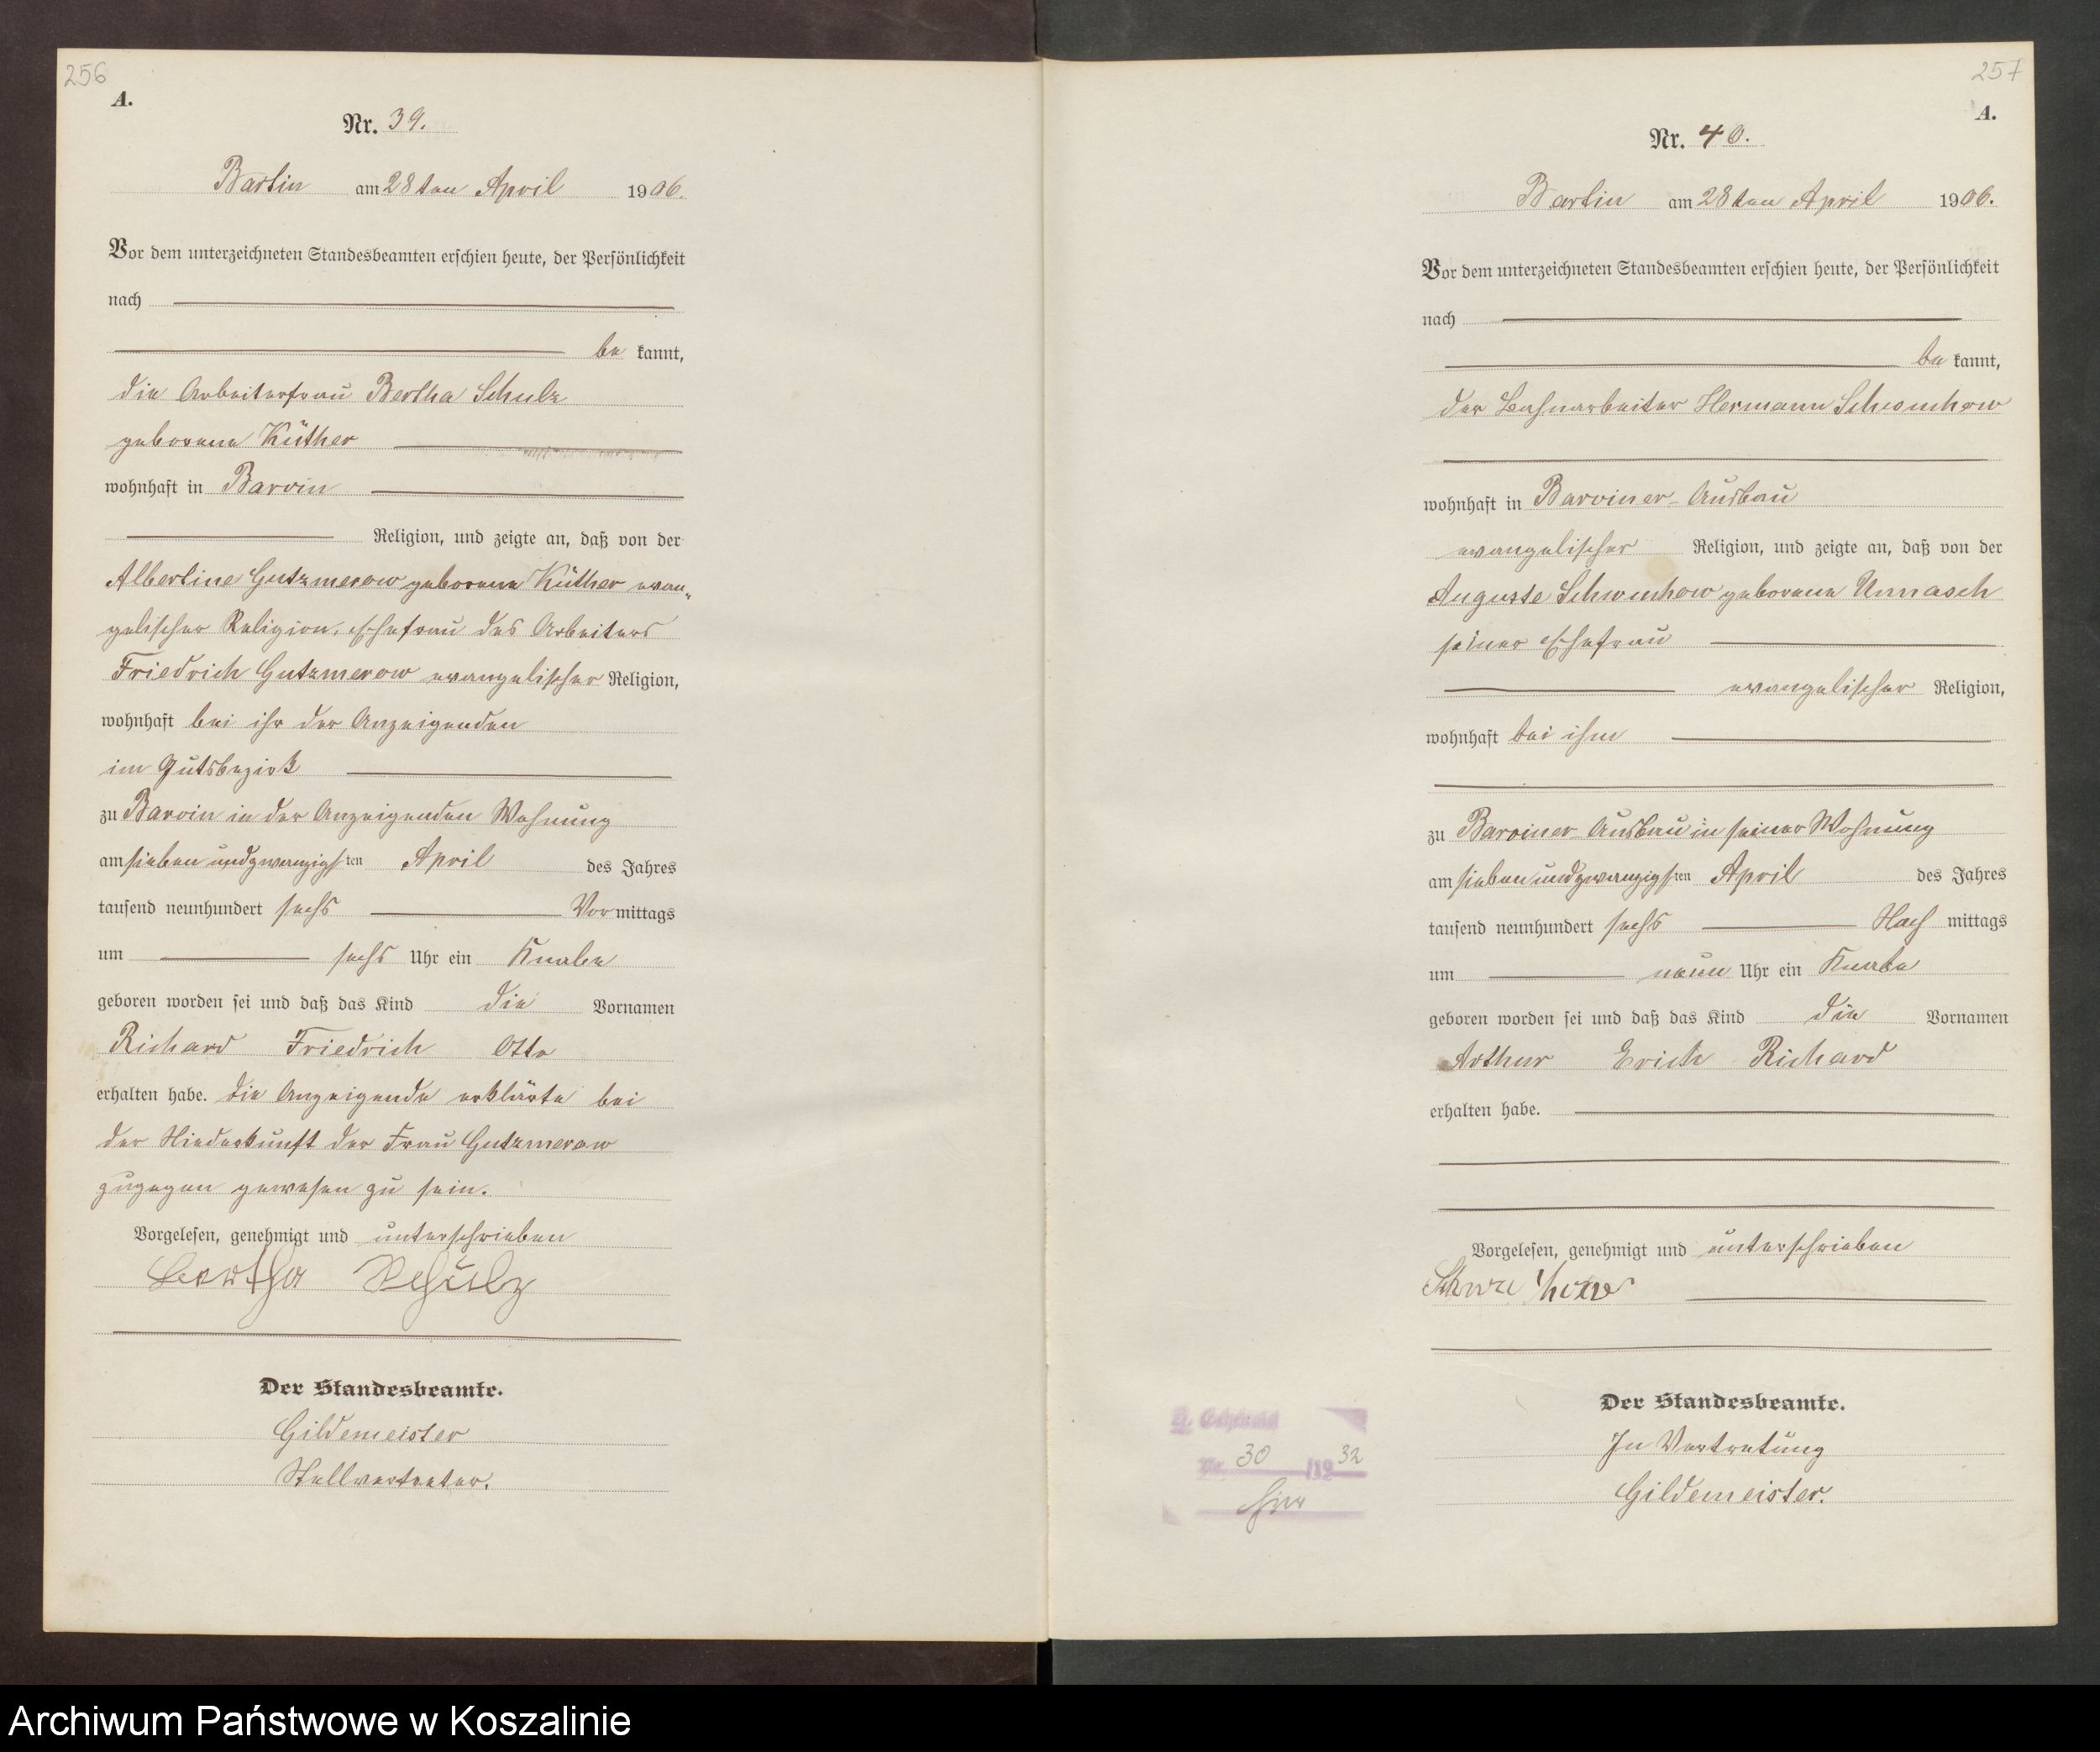 256
A.
Nr. 39.
Bartin am 28ten April 1906.
Vor dem unterzeichneten Standesbeamten erschien heute, der Persönlichkeit
nach
be kannt,
die Arbeiterfrau Bertha Schulz
geborene Küther
wohnhaft in Barvin
Religion, und zeigte an, daß von der
Albertine Gutzmerow geborene Küther evan„
gelischer Religion, Ehefrau des Arbeiters
Friedrich Gutzmerow evangelischer Religion,
wohnhaft bei ihr der Anzeigenden
im Gutsbezirk
zu Barvin in der Anzeigenden Wohnung
am sieben und zwanzigsten April des Jahres
tausend neunhundert sechs Vormittags
um sechs Uhr ein Knabe
geboren worden sei und daß das Kind die Vornamen
Richard Friedrich Otto
erhalten habe. Die Anzeigende erklärte bei
der Niederkunft der Frau Gutzmerow
zugegen gewesen zu sein.
Vorgelesen, genehmigt und unterschrieben
Bertha Schulz
Der Standesbeamte.
Gildemeister
Stellvertreter.
257
A.
Nr. 40.
Bartin am 28ten April 1906.
Vor dem unterzeichneten Standesbeamten erschien heute, der Persönlichkeit
nach
be kannt,
der Bahnarbeiter Hermann Schwuchow
wohnhaft in Barviner-Ausbau
evangelischer Religion, und zeigte an, daß von der
Auguste Schwuchow geborene Unnasch
seiner Ehefrau
evangelischer Religion,
wohnhaft bei ihm
zu Barviner-Ausbau in seiner Wohnung
am sieben und zwanzigsten April des Jahres
tausend neunhundert sechs Nach mittags
um neun Uhr ein Knabe
geboren worden sei und daß das Kind die Vornamen
Arthur Erich Richard
erhalten habe.
Vorgelesen, genehmigt und unterschrieben
Schwuchow
Der Standesbeamte.
In Vertretung
Gildemeister.
Nr. 30 /1932
Archiwum Państwowe w Koszalinie